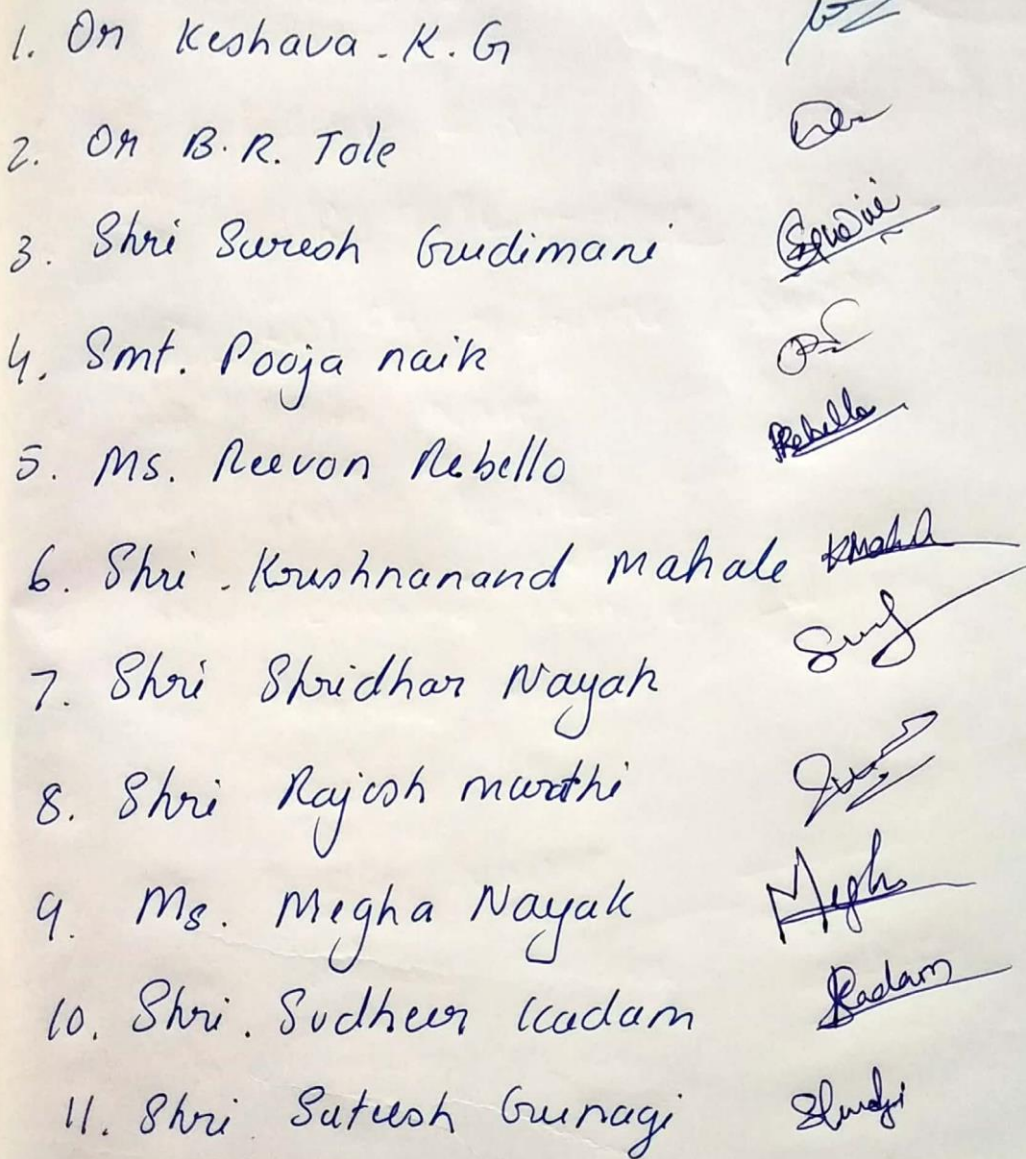 1. Dr Keshava. K. G
2. Dr B. R. Tole
3. Shri Suresh Gudimani
4. Smt. Pooja naik
5. Ms. Reevon Rebello Rebello
6. Shri. Krushnanand Mahale
7. Shri Shridhar Nayak
8. Shri Rajesh marathi
9. Ms. Megha Nayak Megha
10. Shri. Sudheer Kadam Kadam
11. Shri Sateesh Gunagi